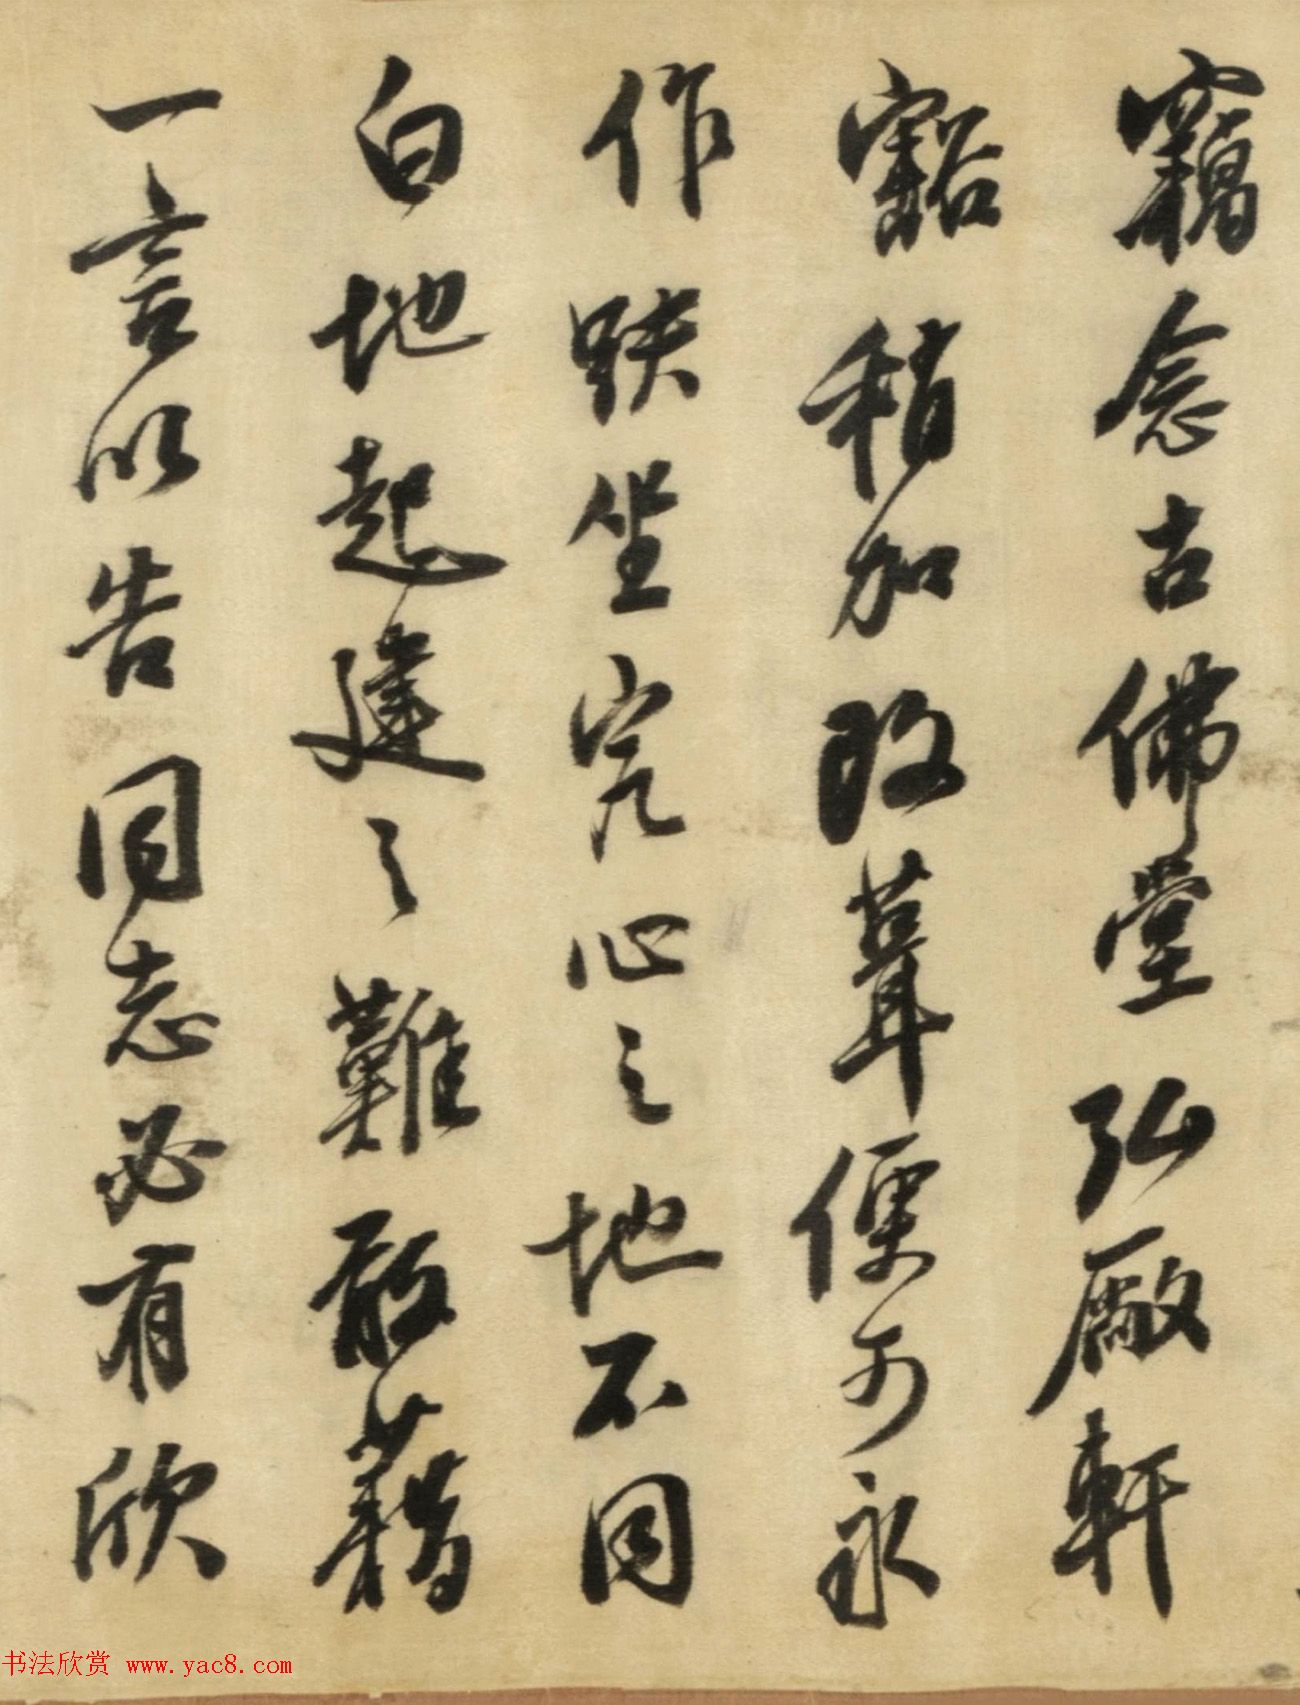 竊念古佛堂弘敞軒
豁稍加改葺便可永
作趺坐究心之地不同
白地起建之難敢藉
一言以告同志必有欣
书法欣赏 www.yac8.com